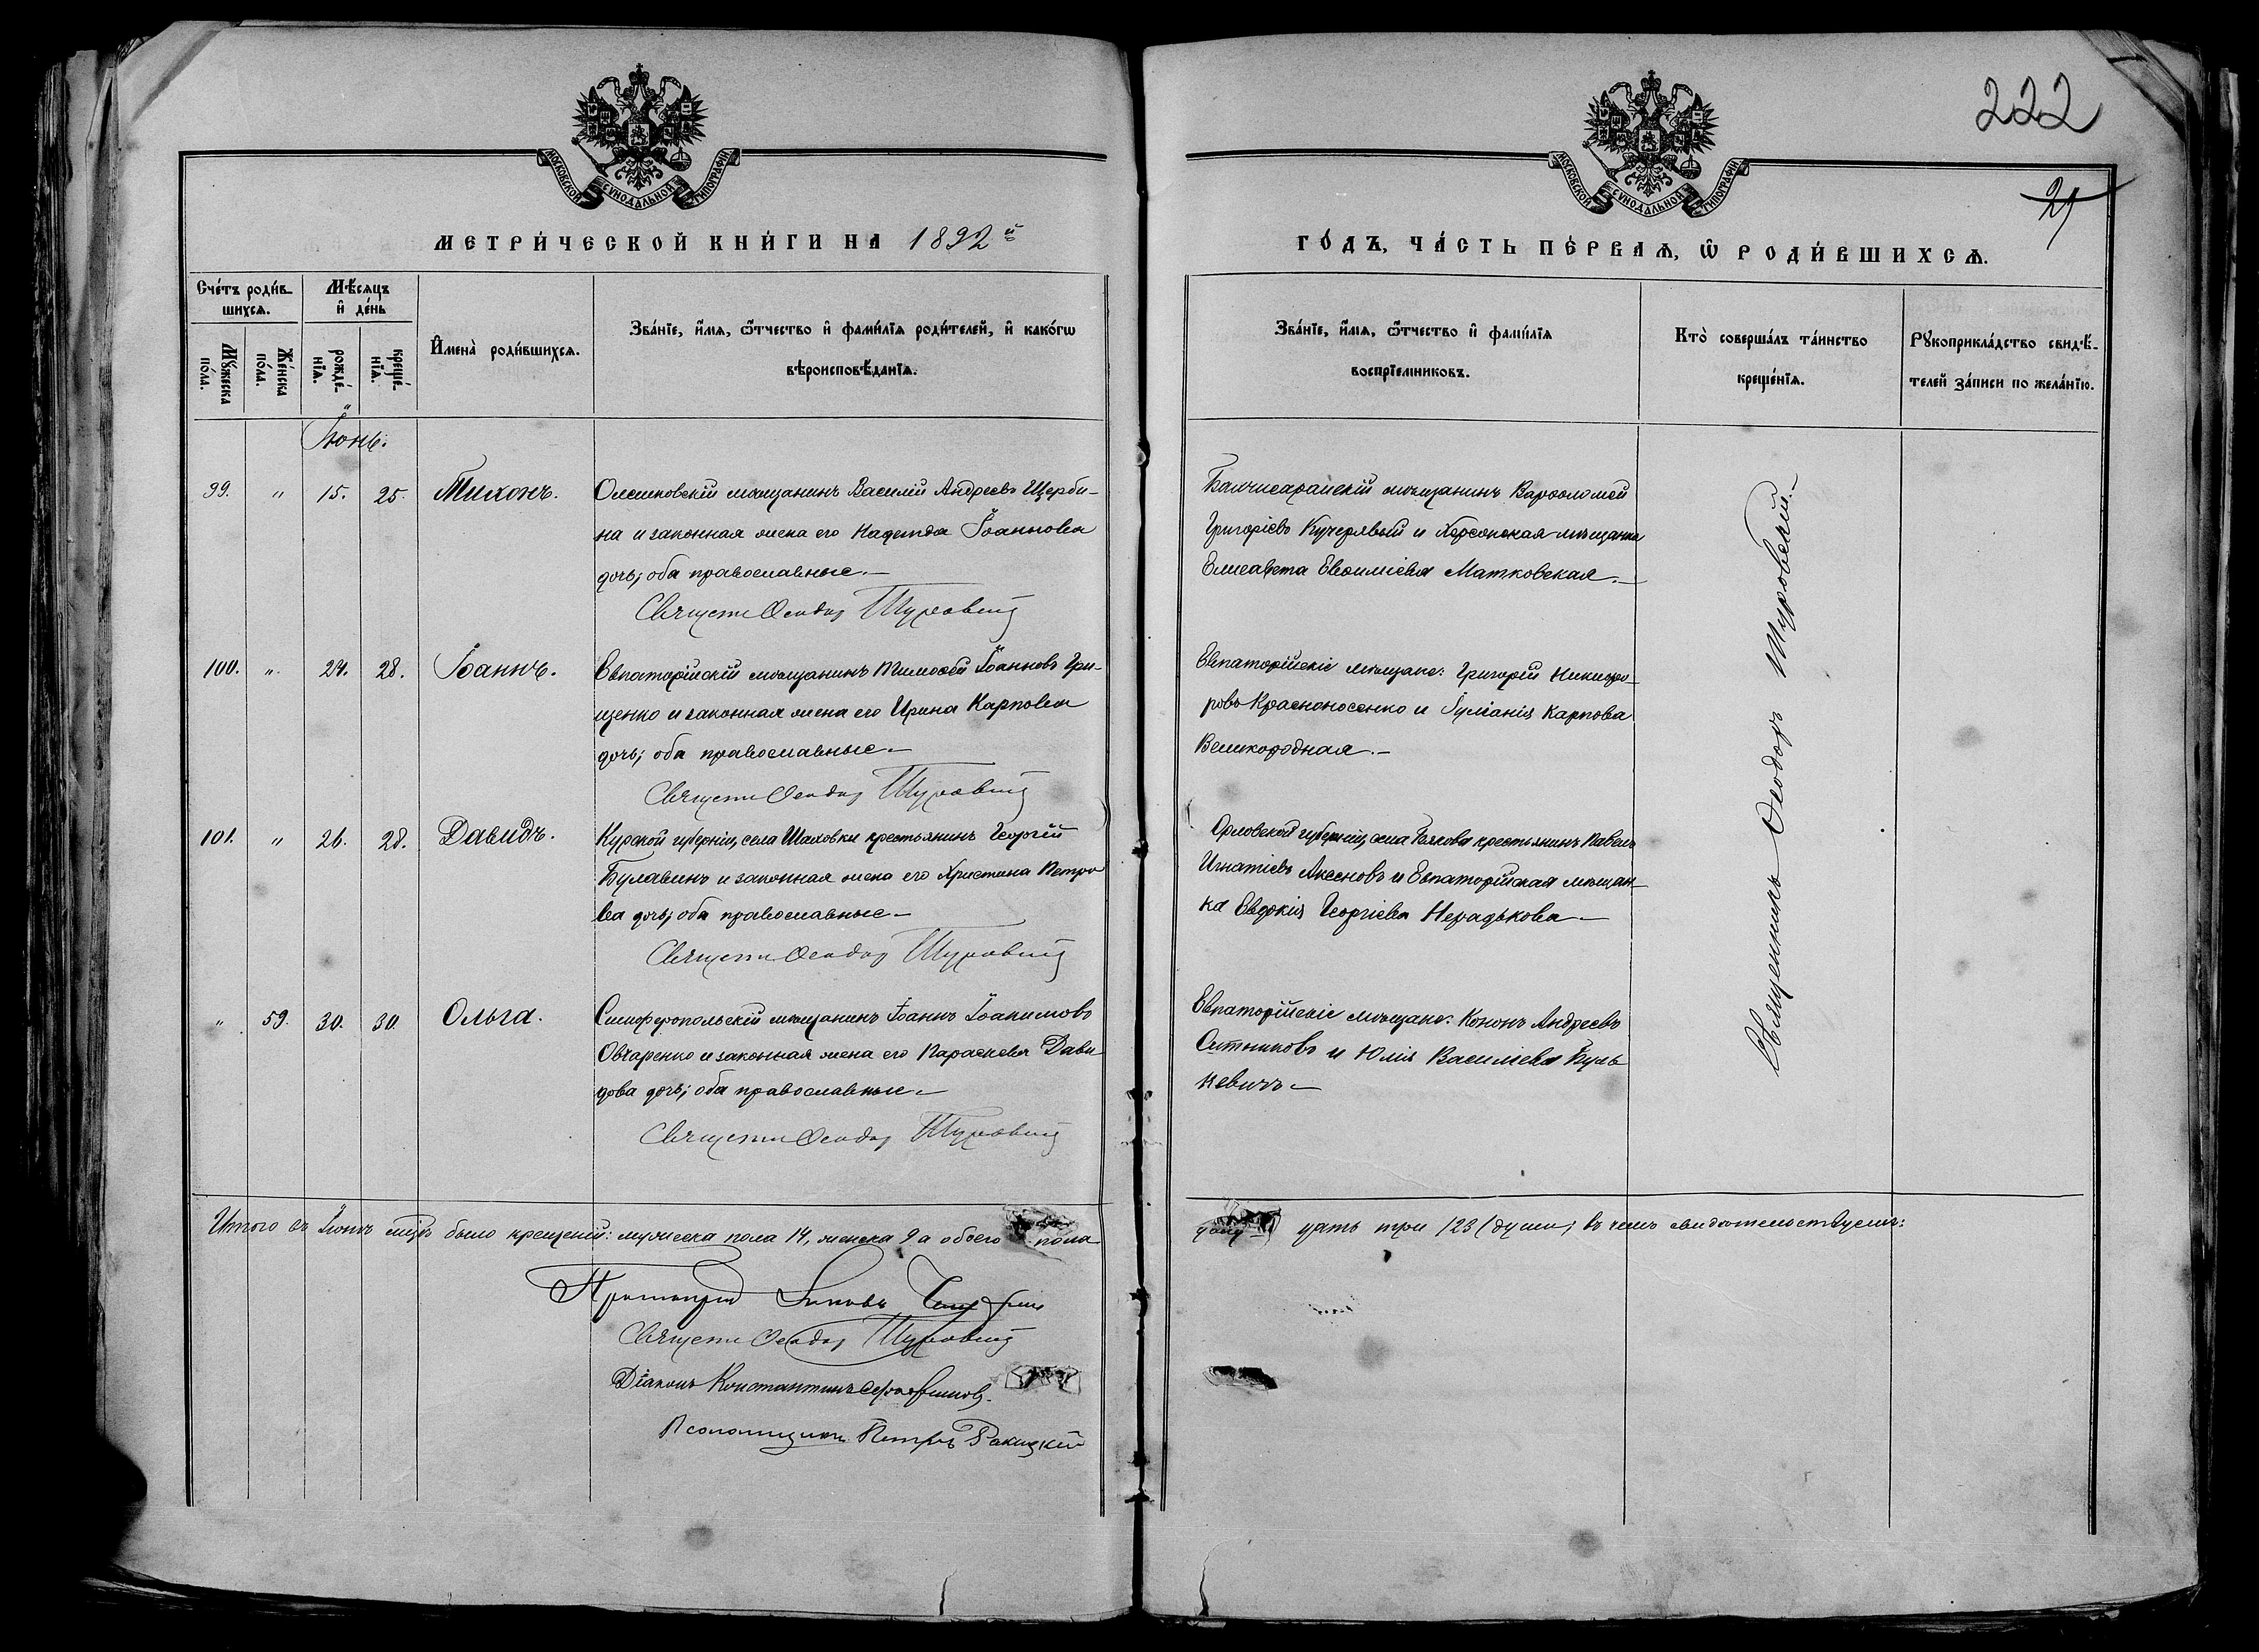 222
21
МОСКОВСКОЙ СУНОДАЛЬНОЙ ТИПОГРАФІИ
МОСКОВСКОЙ СУНОДАЛЬНОЙ ТИПОГРАФІИ
МЕТРИ́ЧЕСКОЙ КНИ́ГИ НА 1892й
ГО́ДЪ, ЧА́СТЬ ПЕ́РВАѦ, Ѿ РОДИ́ВШИХСѦ.
Сче́тъ роди́в-
шихсѧ.
Мꙋжеска по́ла.
Же́нска по́ла.
Мѣ́сѧцъ
и҆ де́нь
рожде́-нїѧ.
креще́-нїѧ.
И҆мена̀ роди́вшихсѧ.
Зва́нїе, и҆́мѧ, ѻ҆́тчество и҆ фами́лїѧ роди́телей, и҆ како́гѡ
вѣроисповѣ́данїѧ.
Зва́нїе, и҆́мѧ, ѻ҆́тчество и҆ фами́лїѧ
воспрїе́мниковъ.
Кто̀ соверша́лъ та́инство
креще́нїѧ.
Рꙋкоприкла́дство свидѣ́-
телей за́писи по жела́нїю.
Іюнь.
99. " 15. 25. Тихонъ. Олешковскій мѣщанинъ Василій Андреевъ Щерби-
на и законная жена его Надежда Іоаннова
дочь; оба православные.—
Священн Ѳеодор Туровскій
Бахчисарайскій мѣщанинъ Варѳоломей
Григоріевъ Кучерявый и Херсонская мѣщанка
Елисавета Евѳиміева Матковская.—
100. " 24. 28. Іоаннъ. Евпаторійскій мѣщанинъ Тимоѳей Іоанновъ Гри-
щенко и законная жена его Ирина Карпова
дочь; оба православные.—
Священн Ѳеодор Туровскій
Евпаторійскіе мѣщане: Григорій Никифо-
ровъ Красноносенко и Іуліанія Карпова
Великородная.—
101. " 26. 28. Давидъ. Курской губерніи, села Шаховки крестьянинъ Георгій
Булавинъ и законная жена его Христина Петро
ва дочь; оба православные—
Священн Ѳеодор Туровскій
Орловской губерніи, села крестьянинъ Павелъ
Игнатіевъ Аксеновъ и Евпаторійская мѣщан-
ка Евдокія Георгіева Нерадькова—
" 59. 30. 30. Ольга. Симферопольскій мѣщанинъ Іоаннъ Іоакимовъ
Овчаренко и законная жена его Параскева Дави
дова дочь; оба православные.—
Священн Ѳеодор Туровскій
Евпаторійскіе мѣщане: Кононъ Андреевъ
Ситниковъ и Юлія Василіева Куль
кевичъ—
Священникъ Ѳеодоръ Туровскій.—
Итого въ Іюнѣ мцѣ было крещеній: мужеска пола 14, женска 9 а обоего пола
двад цать три /23/ души; въ чемъ свидѣтельствуемъ:
Протоіерей Іаковъ
Священн Ѳеодор Туровскій
Діаконъ Константинъ
Псаломщикъ Петръ Ракицкій